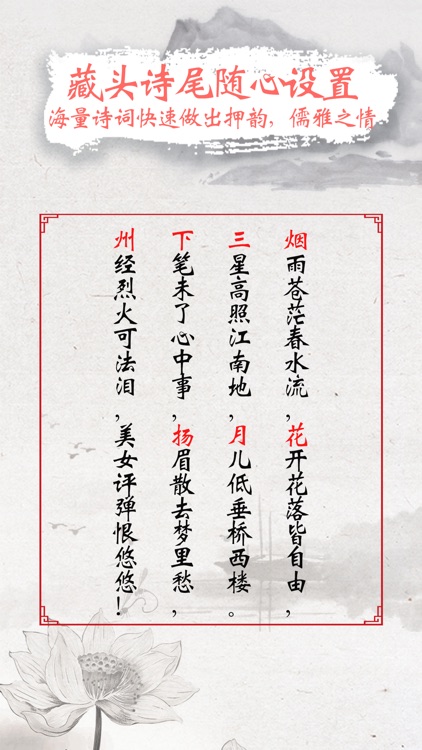 藏头诗尾随心设置
海量诗词快速做出押韵，儒雅之情
烟雨苍茫春水流，花开花落皆自由，
三星高照江南地，月儿低垂桥西楼。
下笔未了心中事，扬眉散去梦里愁，
州经烈火可法泪，美女评弹恨悠悠！